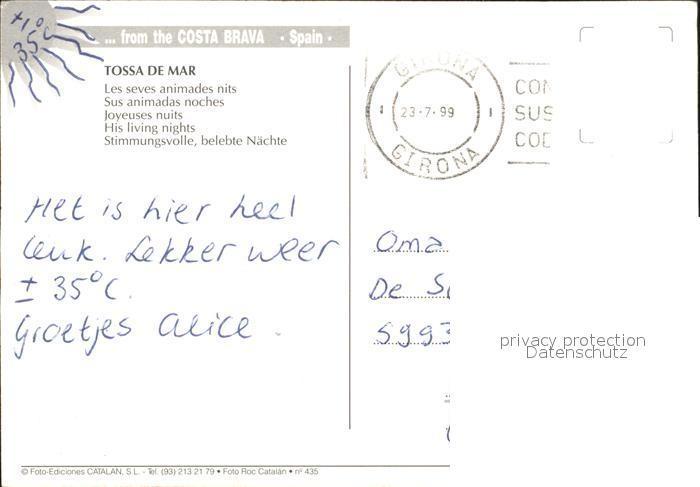 35°C
... from the COSTA BRAVA • Spain •
TOSSA DE MAR
Les seves animades nits
Sus animadas noches
Joyeuses nuits
His living nights
Stimmungsvolle, belebte Nächte
GIRONA
23-7-99
GIRONA
CON
SUS
COD
Het is hier heel
leuk. Lekker weer
± 35°C.
Groetjes Alice.
Oma
De
5993
privacy protection
Datenschutz
© Foto-Ediciones CATALAN, S.L. - Tel. (93) 213 21 79 • Foto Roc Catalán • nº 435